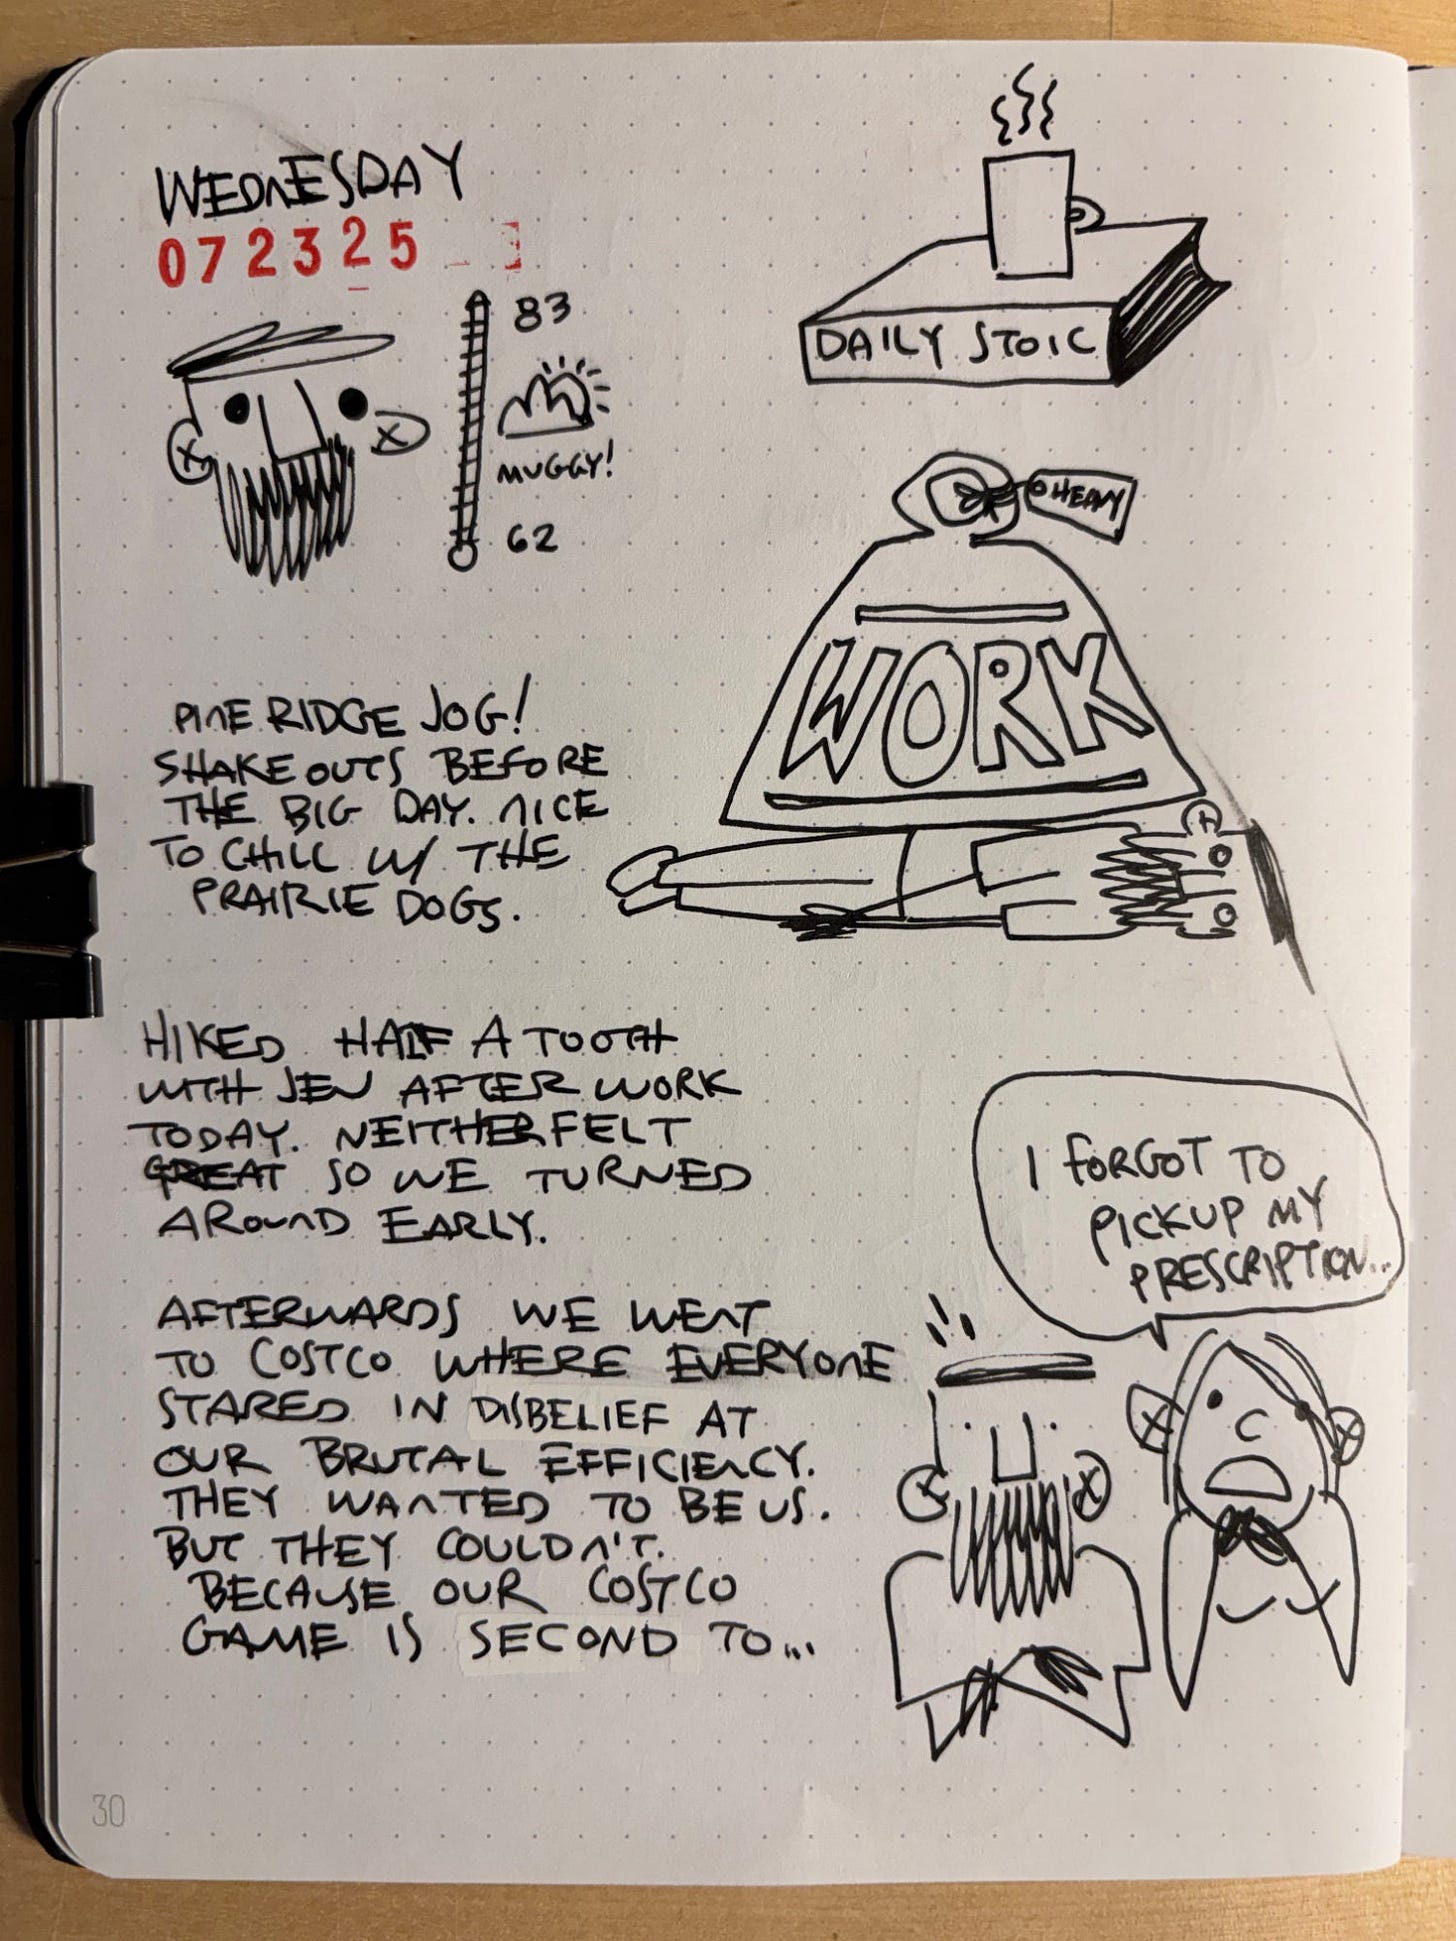 WEDNESDAY
072325
83
MUGGY!
62
DAILY STOIC
HEAVY
WORK
PINE RIDGE JOG!
SHAKEOUTS BEFORE
THE BIG DAY. NICE
TO CHILL W/ THE
PRAIRIE DOGS.
HIKED HALF A TOOTH
WITH JEN AFTER WORK
TODAY. NEITHER FELT
GREAT SO WE TURNED
AROUND EARLY.
I FORGOT TO
PICKUP MY
PRESCRIPTION...
AFTERWARDS WE WENT
TO COSTCO WHERE EVERYONE
STARED IN DISBELIEF AT
OUR BRUTAL EFFICIENCY.
THEY WANTED TO BE US.
BUT THEY COULDN'T.
BECAUSE OUR COSTCO
GAME IS SECOND TO...
30